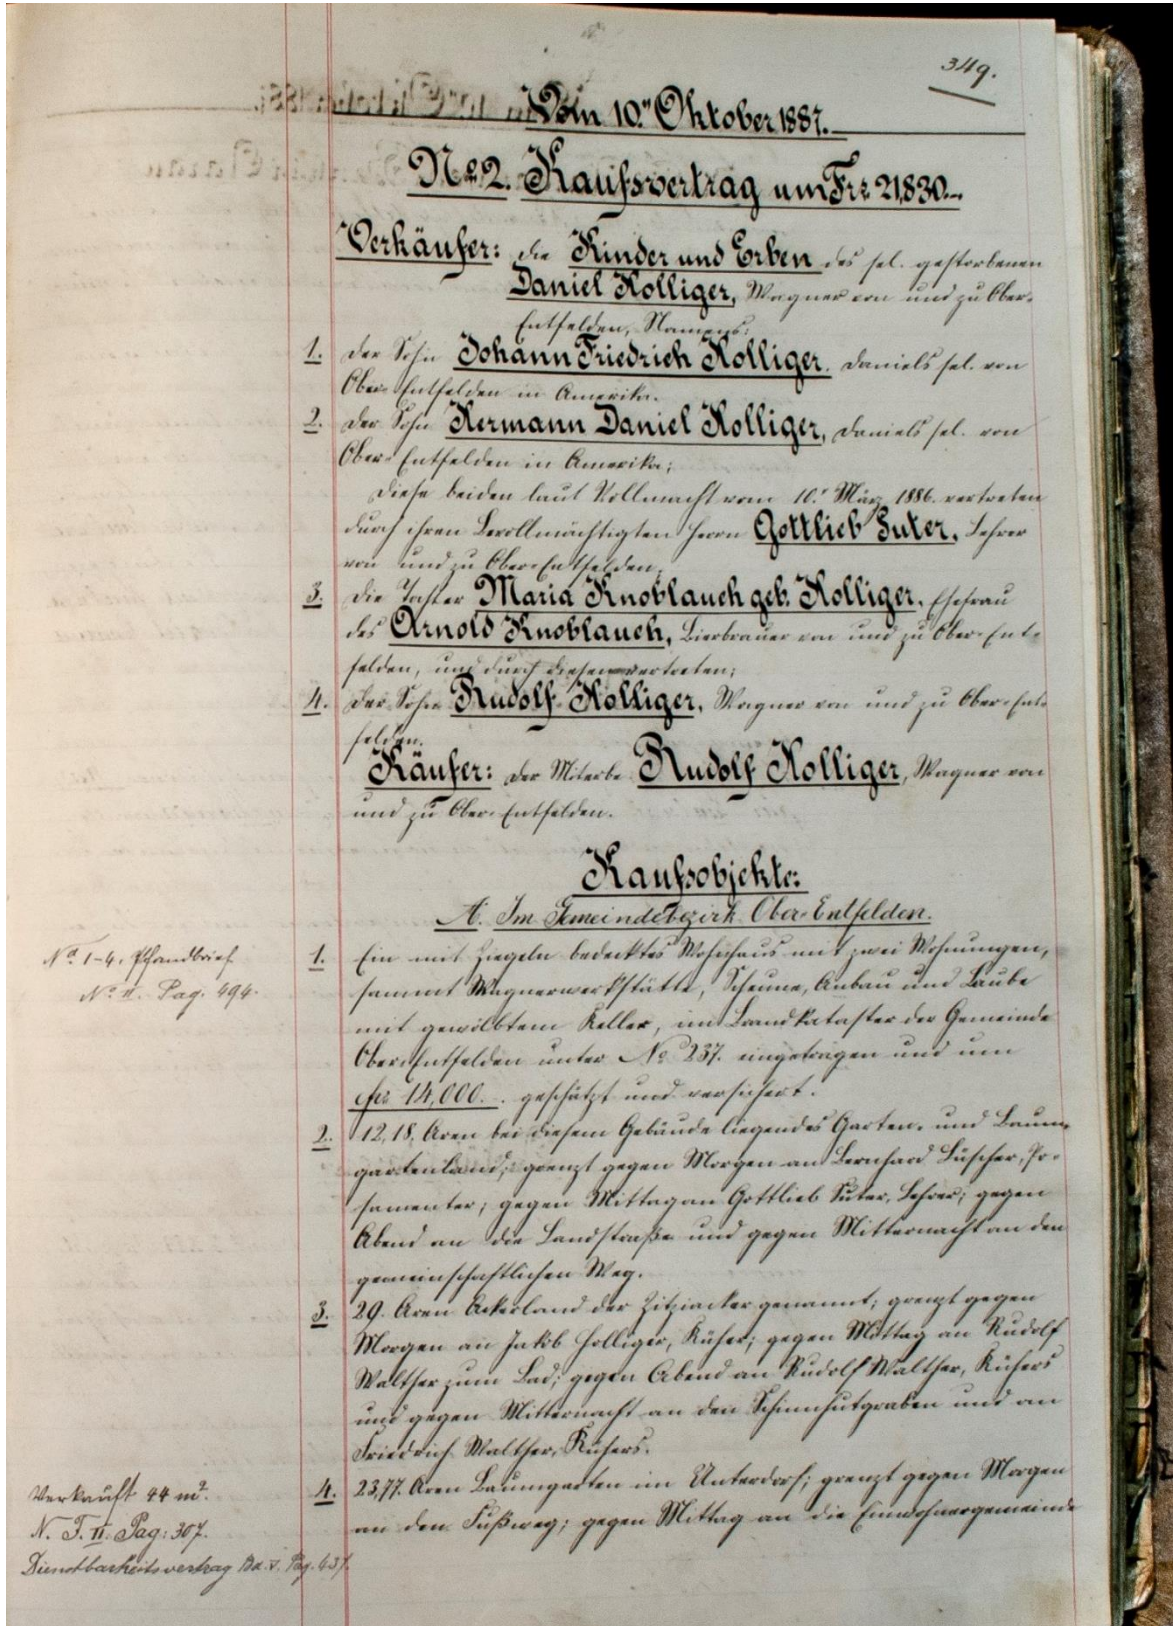 349.
Vom 10.ten Oktober 1887.
No. 2. Kaufsvertrag um Frs 21,830.–.
Verkäufer: die Kinder und Erben des sel. gestorbenen
Daniel Holliger, Wagner von und zu Ober-
Entfelden, Namens:
1. Der Sohn Johann Friedrich Holliger, Daniels sel. von
Ober-Entfelden in Amerika.
2. Der Sohn Hermann Daniel Holliger, Daniels sel. von
Ober-Entfelden in Amerika;
Diese beiden laut Vollmacht vom 10. März 1886. vertreten
durch ihren Bevollmächtigten Herrn Gottlieb Suter, Lehrer
von und zu Ober-Entfelden;
3. Die Tochter Maria Knoblauch geb. Holliger, Ehefrau
des Arnold Knoblauch, Bierbrauer von und zu Ober-Ent-
felden, und durch diesen vertreten;
4. Der Sohn Rudolf Holliger, Wagner von und zu Ober-Ent-
felden.
Käufer: Der Miterbe Rudolf Holliger, Wagner von
und zu Ober-Entfelden.
Kaufsobjekte:
A. Im Gemeindebezirk Ober-Entfelden.
No. 1-4. Pfandbrief
No. II. Pag. 494.
1. Ein mit Ziegeln bedecktes Wohnhaus mit zwei Wohnungen,
sammt Wagnerwerkstätte, Scheune, Anbau und Laube
mit gewölbtem Keller, im Brandkataster der Gemeinde
Ober-Entfelden unter No. 237. eingetragen und um
frs 14,000.–. geschätzt und versichert.
2. 12,18. Aren bei diesem Gebäude liegendes Garten- und Baum-
gartenland; grenzt gegen Morgen an Bernhard Lüscher, Po-
samenter; gegen Mittag an Gottlieb Suter, Lehrer; gegen
Abend an die Landstraße und gegen Mitternacht an den
gemeinschaftlichen Weg.
3. 29. Aren Ackerland der genannt; grenzt gegen
Morgen an Jakob Holliger, Küfer; gegen Mittag an Rudolf
Walther zum Bad; gegen Abend an Rudolf Walther, Küfers
und gegen Mitternacht an den und an
Friedrich Walther, Küfers.
Verkauft 44 m².
N. F. II. Pag: 307.
Dienstbarkeitsvertrag Bd. I. Pag. 437.
4. 23,77. Aren Baumgarten im Unterdorf; grenzt gegen Morgen
an den Fußweg; gegen Mittag an die Einwohnergemeinde